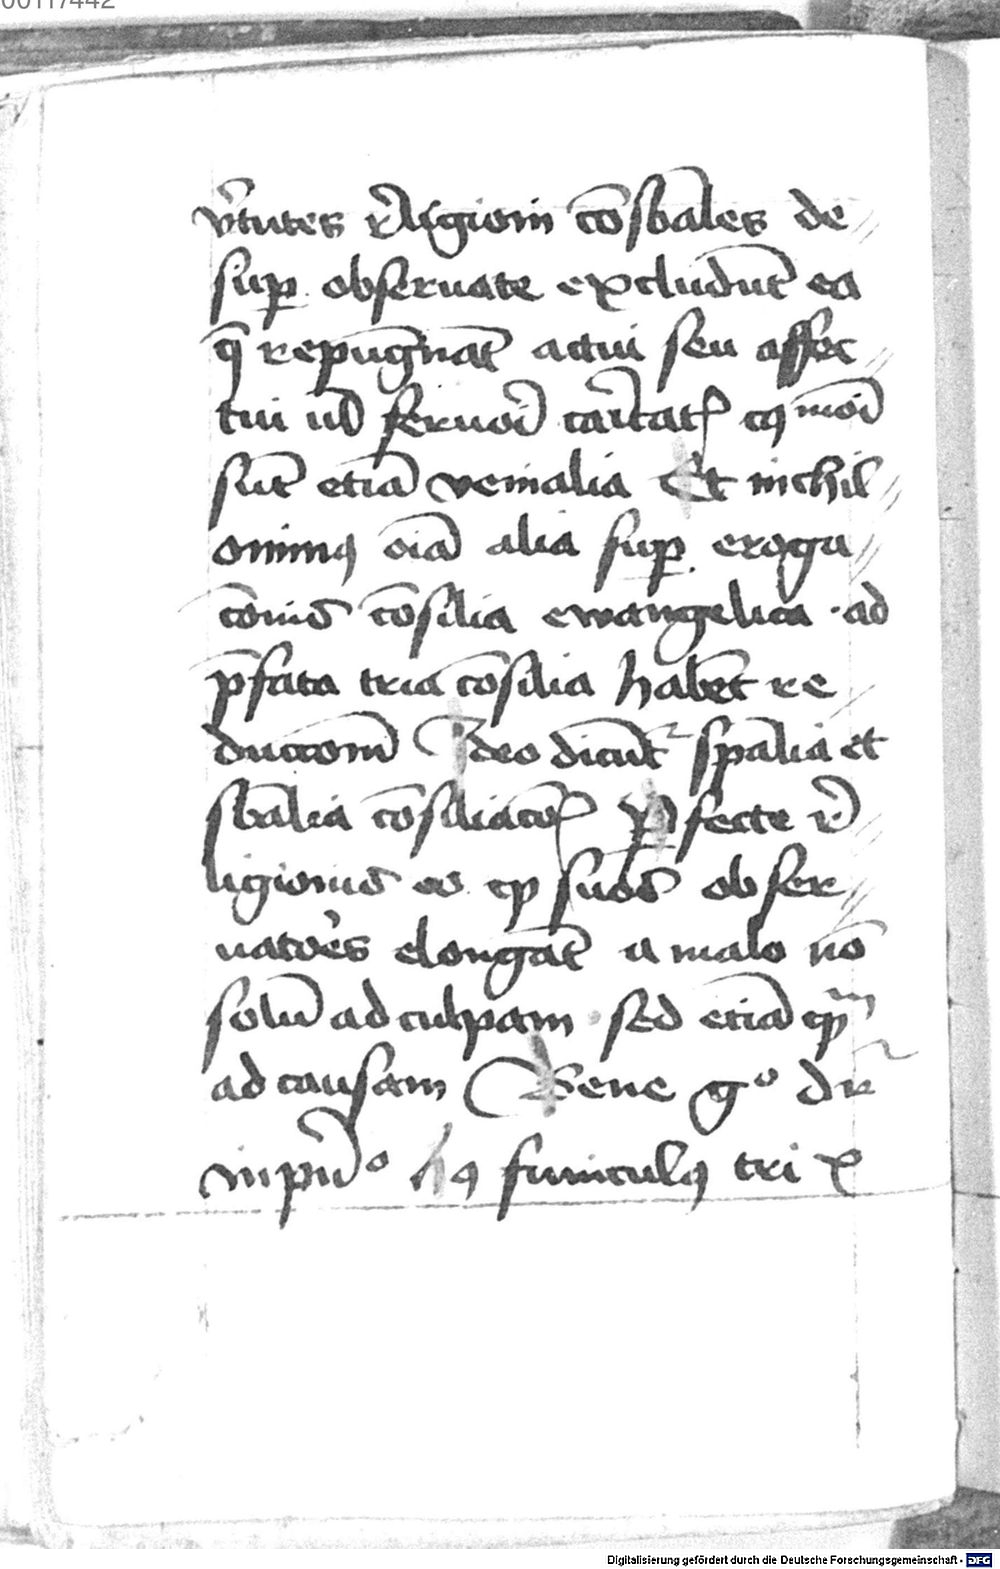 00117442
v̓tutes r̓ligioni co̅sb̅ales de
sup̱ obseruate excludu̅t ea
q̅ repugna̅t actui seu affec
tui ul̅ feruori̅ ca̓itatꝭ cꝯmo̅i
su̅t etia̅ venialia Et nichil
ominꝯ oi̅a alia sup̱ eroga
c̅onis co̅silia ewangelica · ad
p̅fata tria co̅silia habe̅t re
ducc̅om̅ Ideo dicu̅t᷑ sp̅alia et
sb̅alia co̅siliac̅oꝭ ꝑfecte r̓
ligionis eo qꝫ suos obser
uato̓es elonga̅t a malo no̅
solu̅ ad culpam · sed etia̅ qꝫͫ
ad causam Bene gͦ dr᷑
in pn̅̓ͦ hꝯ funiculꝯ tri x
Digitalisierung gefördert durch die Deutsche Forschungsgemeinschaft - DFG